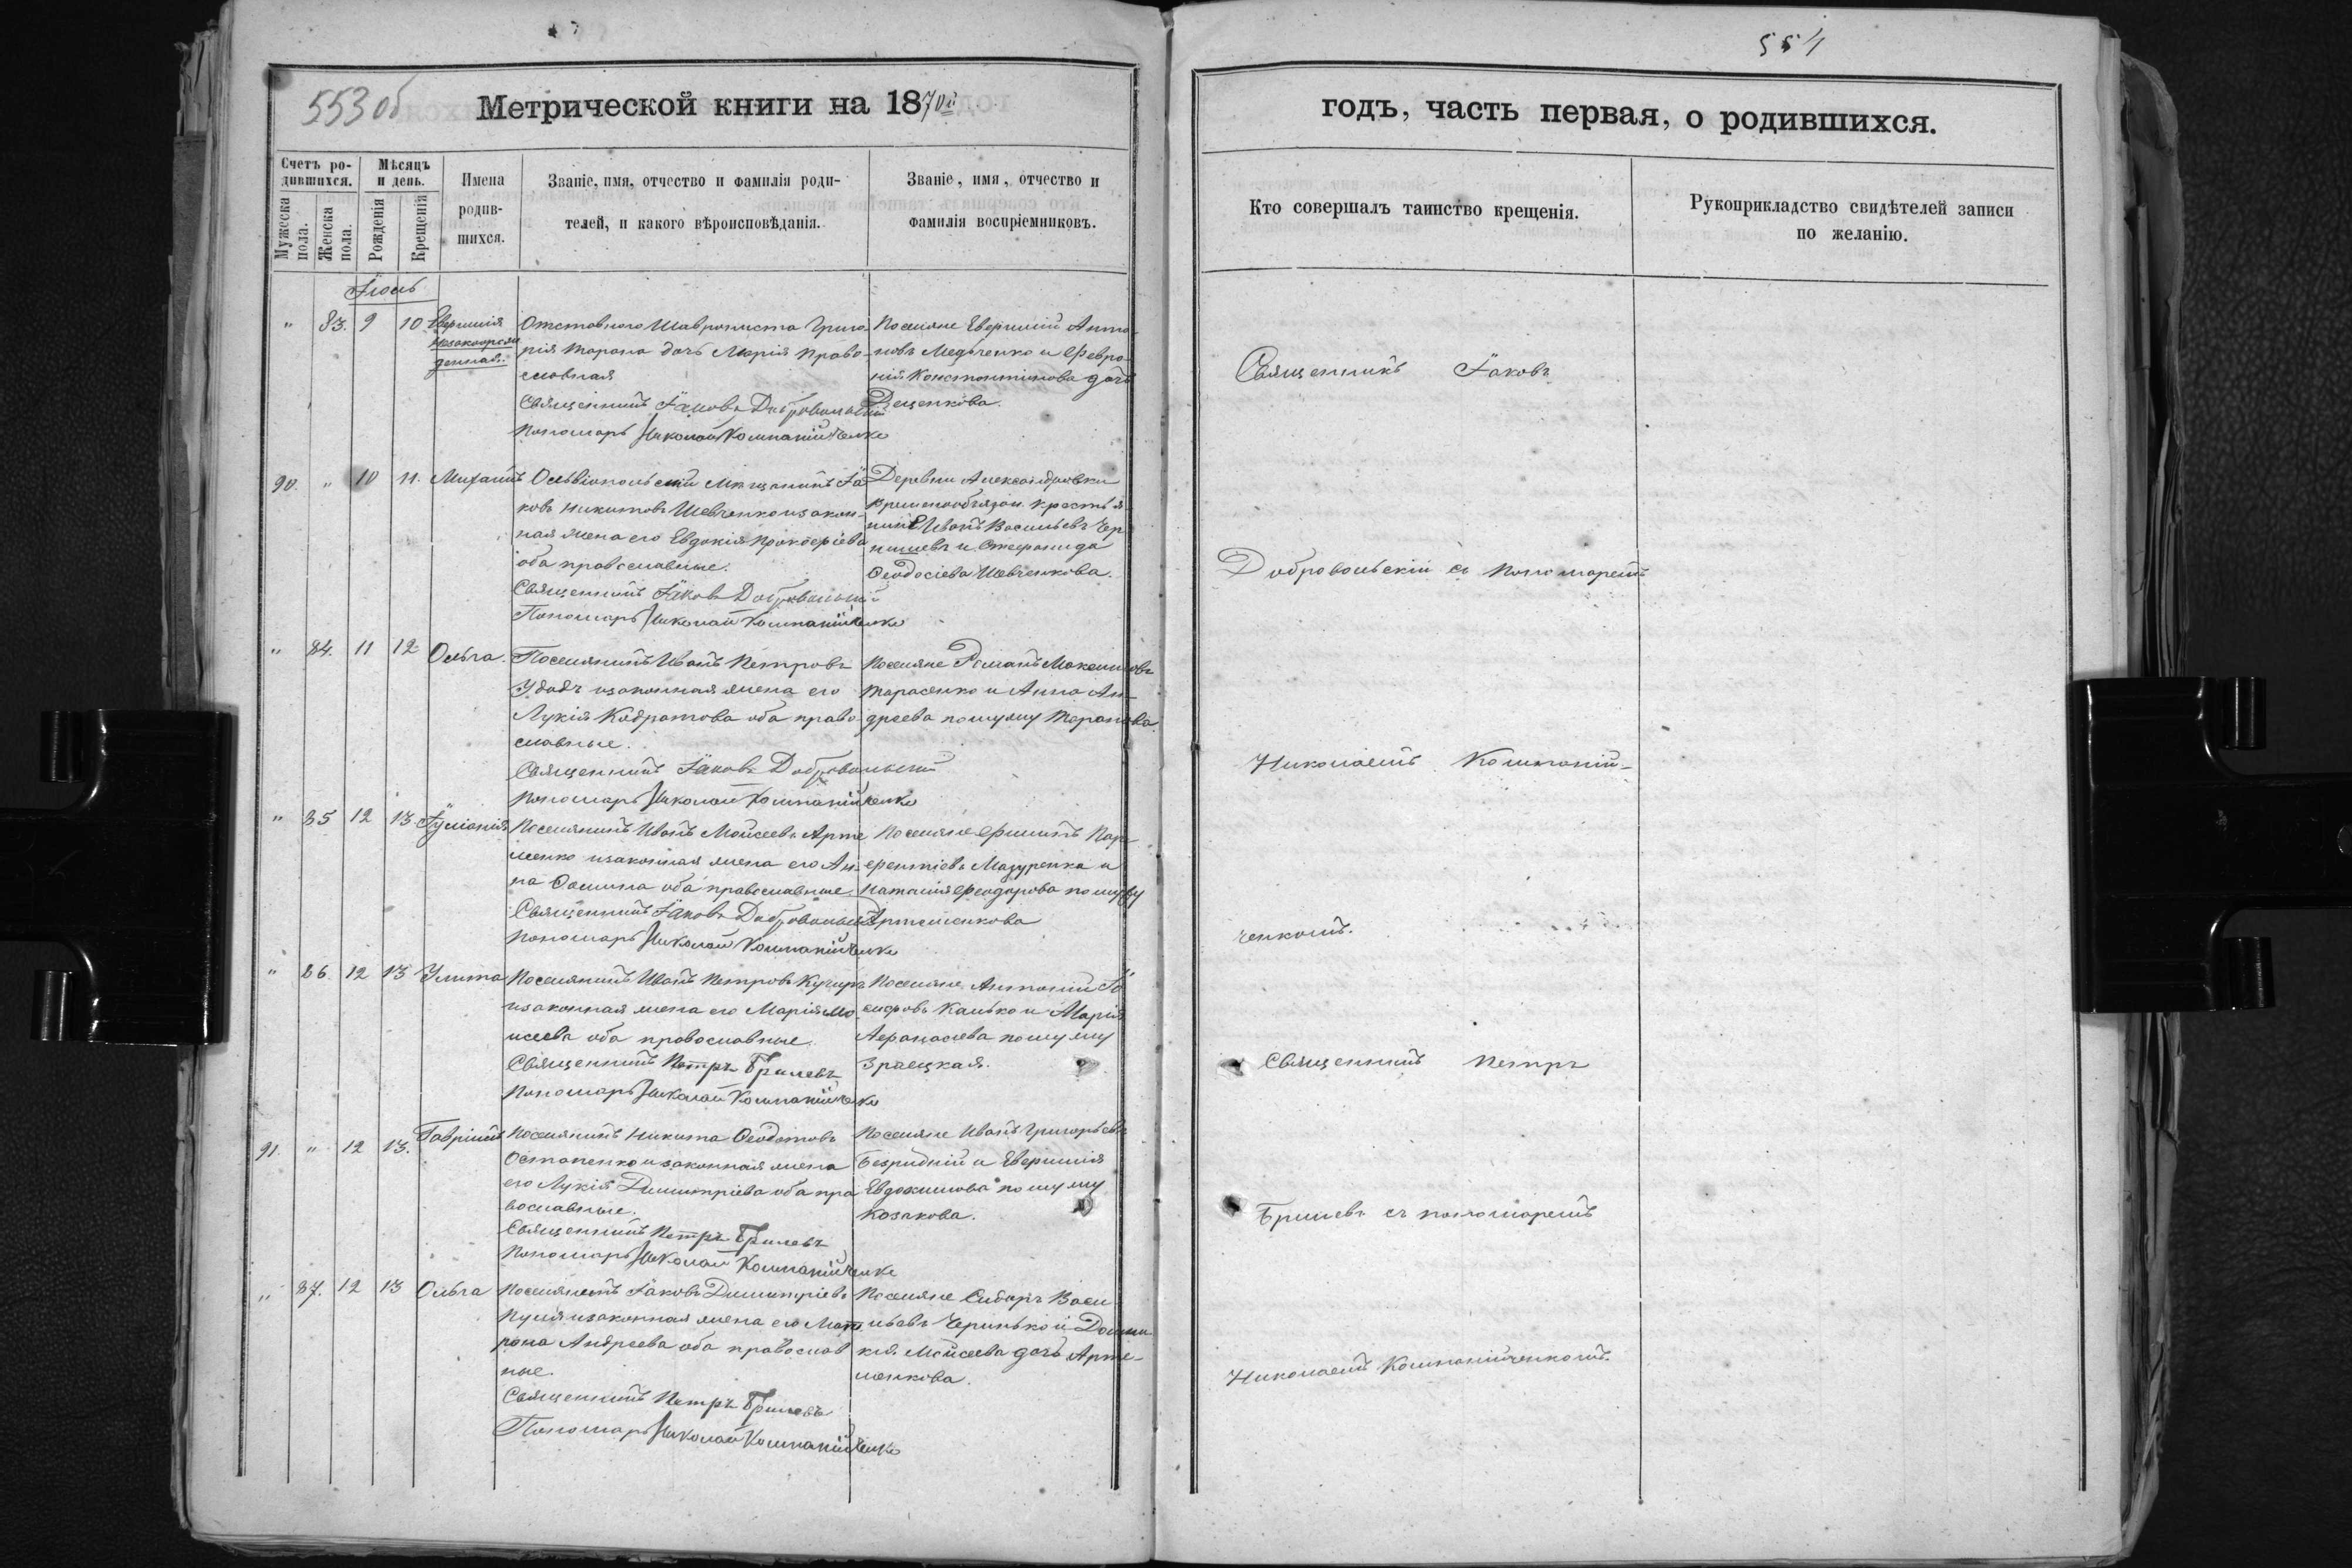 553 об
Метрической книги на 1870й
Счетъ ро-
дившихся.
Мѣсяцъ
и день.
Мужеска
пола.
Женска
пола.
Рожденія
Крещенія
Имена
родив-
шихся.
Званіе, имя, отчество и фамилія роди-
телей, и какого вѣроисповѣданія.
Званіе, имя, отчество и
фамилія воспріемниковъ.
Іюль
" 83. 9 10 Евфимія
незаконорож
денная.
Отставного Григо
рія Тарана дочь Марія право-
славная
Священникъ Іаковъ Добровольскій
Пономарь Николай Компанійченко
Поселяне Евфимій Анто-
новъ Медченко и Февро-
нія Константинова дочь
Деценкова.
90. " 10 11. Михаилъ
Ольвіопольскій мѣщанинъ Іа
ковъ Никитовъ Шевченко и закон-
ная жена его Евдокія Прокофіева
оба православные.
Священникъ Іаковъ Добровольскій
Пономарь Николай Компанійченко
Деревни Александровки
крестья
нинъ Иванъ Васильевъ Чер
нишевъ и Стефанида
Феодосіева Шевченкова.
" 84. 11 12 Ольга.
Поселянинъ Иванъ Петровъ
Удодъ и законная жена его
Лукія Кодратова оба право
славные.
Священникъ Іаковъ Добровольскій
Пономарь Николай Компанійченко
Поселяне Романъ Максимовъ
Тарасенко и Анна Ан-
дреева по мужу Таранова.
" 85 12 13. Іуліанія
Поселянинъ Иванъ Мойсеевъ Арте
менко и законная жена его Ан-
на Фомина оба православные.
Священникъ Іаковъ Добровольскій
Пономарь Николай Компанійченко
Поселяне Филипъ Пар
фентіевъ Мазуренко и
Наталія Феодорова по мужу
Артеменкова
" 86. 12 13 Улита
Поселянинъ Иванъ Петровъ Кучеръ
и законная жена его Марія Мо
исеева оба православные.
Священникъ Петръ Бримевъ
Пономарь Николай Компанійченко
Поселяне Антоній Іо
сифовъ Канько и Марія
Афанасіева по мужу
Зраецкая.
91. " 12 13. Гавріилъ
Поселянинъ Никита Феодотовъ
Остапенко и законная жена
его Лукія Димитріева оба пра
вославные.
Священникъ Петръ Бримевъ
Пономарь Николай Компанійченко
Поселяне Иванъ Григорьевъ
Безридній и Евфимія
Евдокимова по мужу
Козакова.
" 87. 12 13 Ольга
Поселянинъ Іаковъ Димитріевъ
Пуля и законная жена его Мат
рона Андреева оба православ
ные.
Священникъ Петръ Бримевъ
Пономарь Николай Компанійченко
Поселяне Сидоръ Васи
льевъ Черинько и Домни
кія Мойсеева дочь Арте-
менкова.
554
годъ, часть первая, о родившихся.
Кто совершалъ таинство крещенія.
Рукоприкладство свидѣтелей записи
по желанію.
Священникъ Іаковъ
Добровольскій съ пономаремъ
Николаемъ Компаній-
ченкомъ.
Священникъ Петръ
Бримевъ съ пономаремъ
Николаемъ Компанійченкомъ.